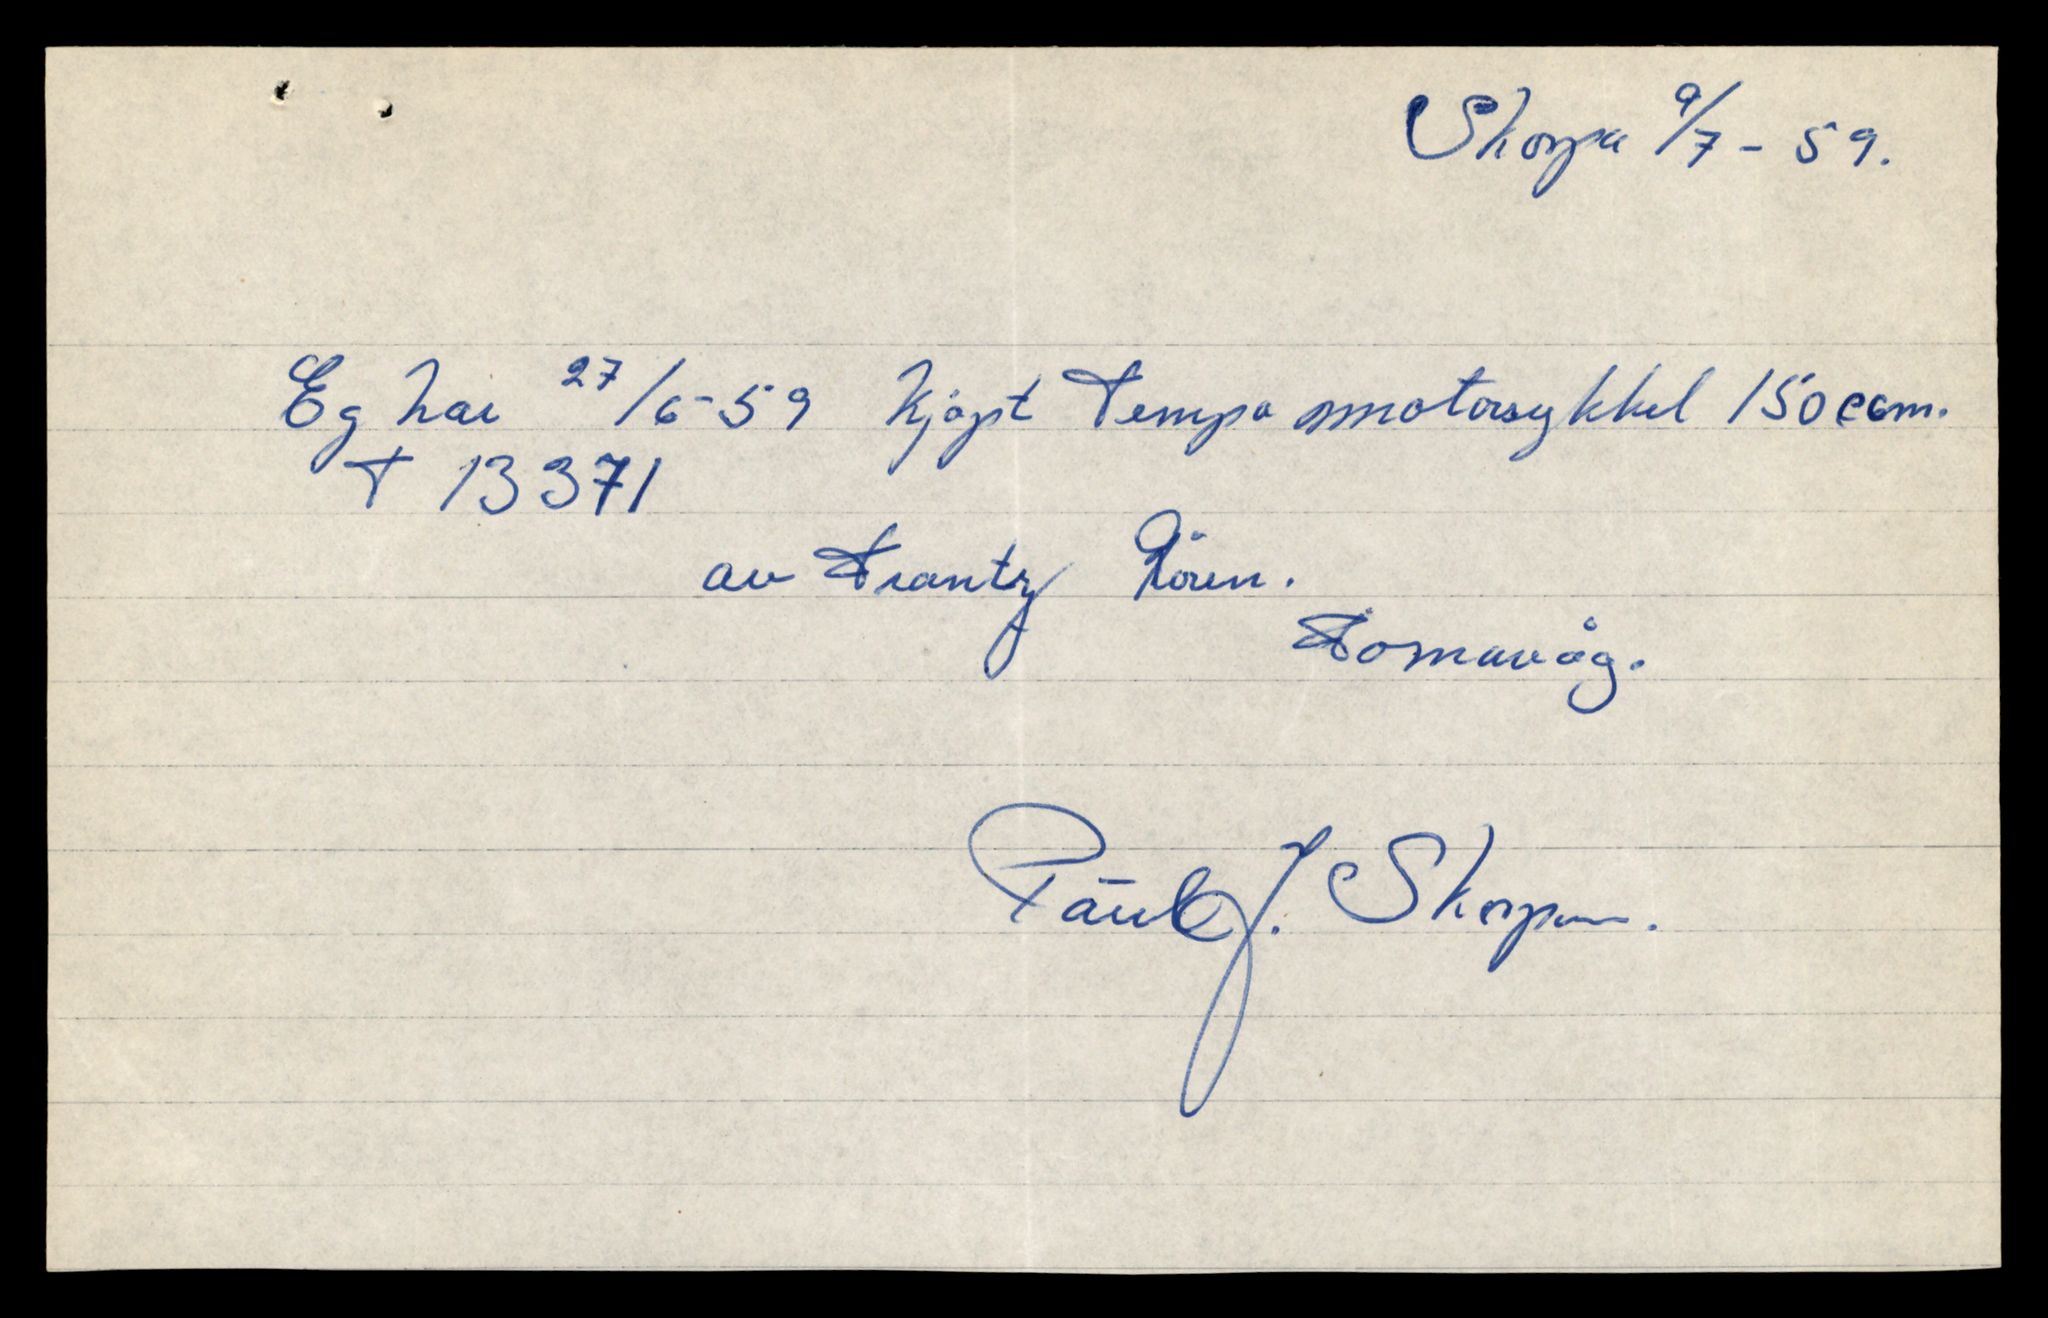 Skorpa 9/7 - 59.
Eg har 27/6-59 kjøpt Tempo motorsykkel 150 ccm.
T 13371
av Frantz Rören.
Tomavåg.
Paul J. Skorpen.